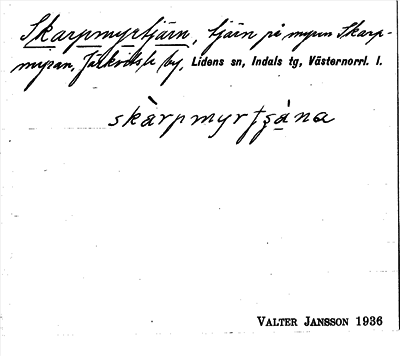 Skarpmyrtjärn, tjärn på myren Skarp-
myran, by, Lidens sn, Indals tg, Västernorrl. l.
skàrpmyrtʂàna
VALTER JANSSON 1936